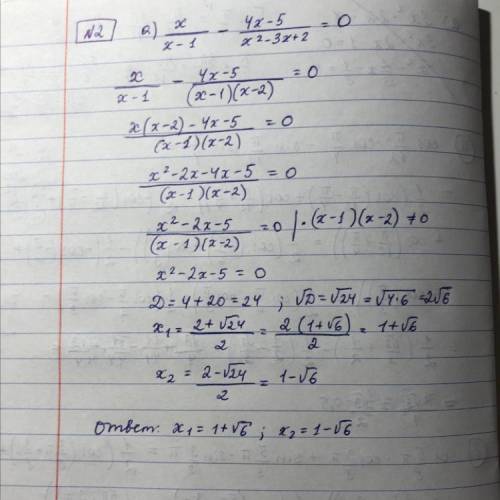 №2 а) x/(x-1) - (4x-5)/(x²-3x+2) = 0
x/(x-1) - (4x-5)/((x-1)(x-2)) = 0
(x(x-2)-4x-5)/((x-1)(x-2)) = 0
(x²-2x-4x-5)/((x-1)(x-2)) = 0
(x²-2x-5)/((x-1)(x-2)) = 0 | · (x-1)(x-2) ≠ 0
x²-2x-5 = 0
D = 4+20 = 24 ; √D = √24 = √4·6 = 2√6
x₁ = (2+√24)/2 = (2(1+√6))/2 = 1+√6
x₂ = (2-√24)/2 = 1-√6
Ответ: x₁ = 1+√6 ; x₂ = 1-√6